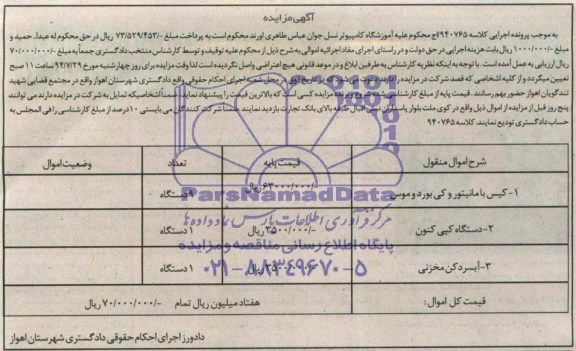 آگهی مزایده
به موجب پرونده اجرایی کلاسه ۹۴۰۷۶۵ج محکوم علیه آموزشگاه کامپیوتر نسل جوان عباس طاهری اورند محکوم است به پرداخت مبلغ -/۷۳/۵۲۹/۴۵۳ ریال در حق محکوم له عبدا.. حمید و
مبلغ -/۱۰۰۰/۰۰۰ ریال بابت هزینه اجرایی در حق دولت و در راستای اجرای مفاد اجرائیه اموالی به شرح ذیل از محکوم علیه توقیف و توسط کارشناس منتخب دادگستری جمعاً به مبلغ -/۷۰/۰۰۰/۰۰۰
ریال ارزیابی به عمل آمده است. با توجه به اینکه نظریه کارشناس به طرفین ابلاغ و در موعد قانونی هیچ اعتراضی واصل نگردیده است لذا وقت مزایده برای روز چهارشنبه مورخ ۹۴/۷/۲۹ ساعت ۱۱ صبح
تعیین میگردد و از کلیه اشخاصی که قصد شرکت در مزایده را دارند دعوت می شود که در تاریخ فوق در محل شعبه اجرای احکام حقوقی واقع دادگستری شهرستان اهواز واقع در مجتمع قضایی شهید
تندگویان اهواز حضور بهم رسانند. قیمت پایه از مبلغ کارشناسی شده شروع و برنده مزایده کسی است که بالاترین قیمت را پیشنهاد نماید ضمناً اشخاصیکه تمایل به شرکت در مزایده دارند می توانند
پنج روز قبل از مزایده از اموال ذیل واقع در کوی ملت بلوار پاسداران نبش اقبال طبقه بالای بانک تجارت بازدید نمایند ضمناً شرکت کنندگان می بایستی ۱۰ درصد از مبلغ کارشناسی را فی المجلس به
حساب دادگستری تودیع نمایند. کلاسه ۹۴۰۷۶۵
شرح اموال منقول	قیمت پایه	تعداد	وضعیت اموال
۱- کیس با مانیتور و کی بورد و موس	-/۶۳۰۰۰/۰۰۰ ریال	۹ دستگاه
۲- دستگاه کپی کنون	-/۳۵۰۰/۰۰۰ ریال	۱ دستگاه
۳- آبسردکن مخزنی	-/۳۵۰۰/۰۰۰ ریال	۱ دستگاه
قیمت کل اموال:	هفتاد میلیون ریال تمام -/۷۰/۰۰۰/۰۰۰ ریال
دادورز اجرای احکام حقوقی دادگستری شهرستان اهواز
ParsNamadData
مرکز فرآوری اطلاعات پارس نماد داده ها
پایگاه اطلاع رسانی مناقصه و مزایده
۰۲۱-۸۸۳۴۹۶۷۰-۵